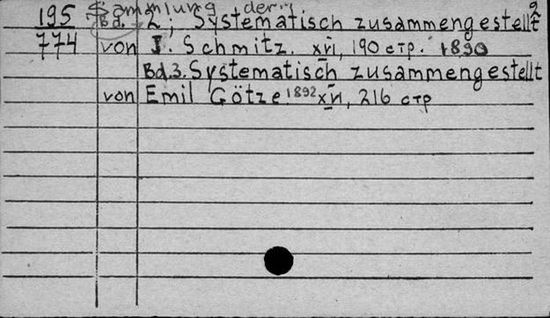 195 Sammlung der.. 9
Bd. 2; Systematisch zusammengestellt
774 von J. Schmitz. XVI, 190 стр. 1890
Bd.3. Systematisch zusammengestellt
von Emil Götze 1892 XVI, 216 стр